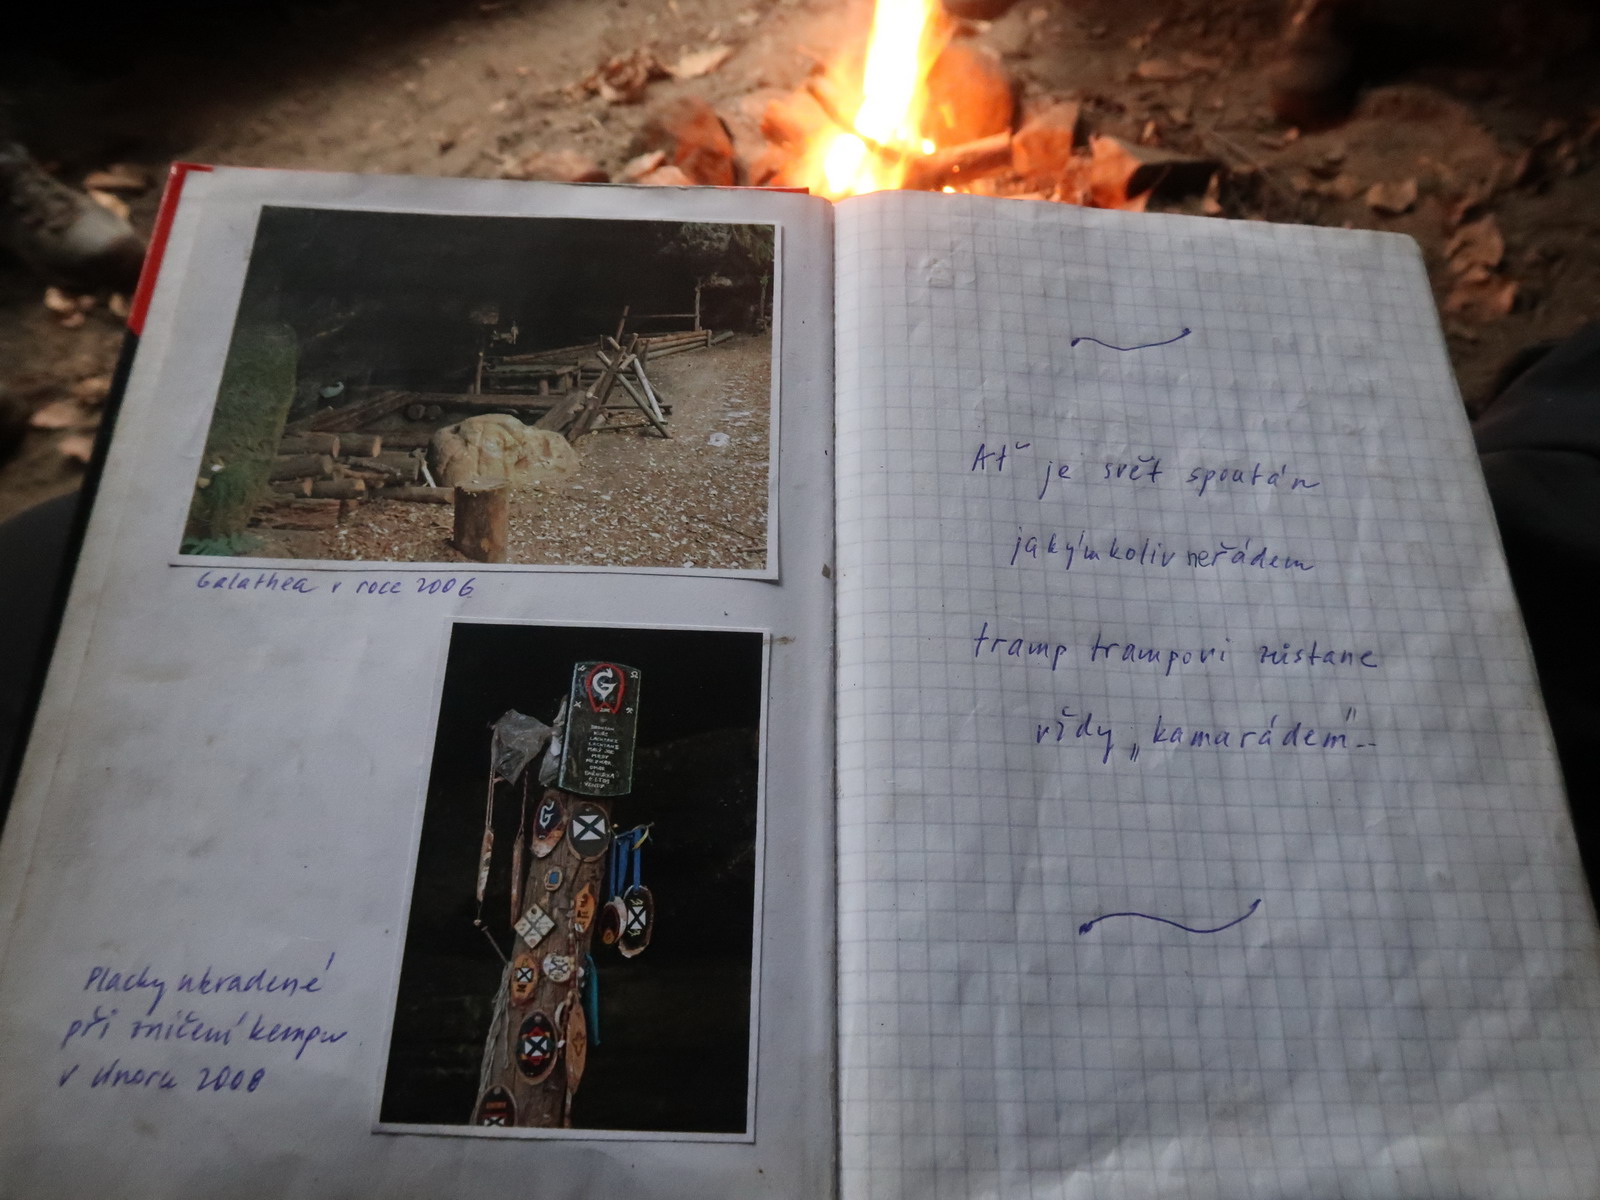 Galathea v roce 2006
Placky ukradené
při zničení kempu
v únoru 2008
G
G
Ať je svět spoután
jakýmkoliv neřádem
tramp trampovi zůstane
vždy „kamarádem"--